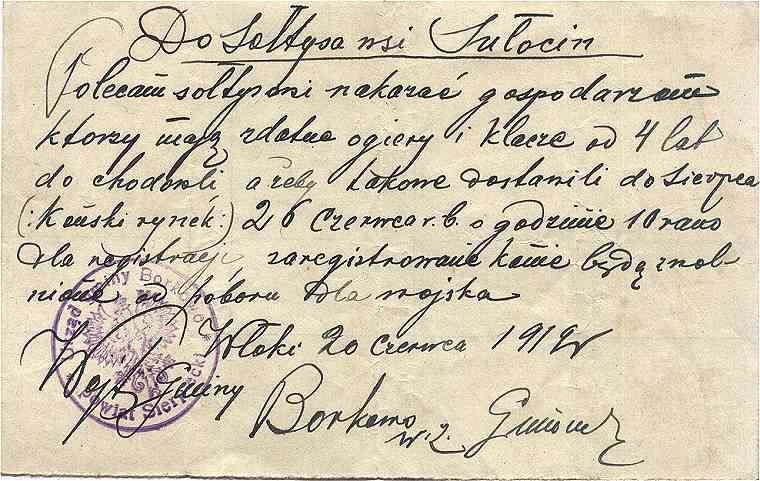 Do Sołtysa wsi Sułocin
Polecam sołtysowi nakazać gospodarzom
ktorzy mają zdatne ogiery i klacze od 4 lat
do chodowli ażeby takowe dostawili do Sierpca
(: Koński rynek :) 26 Czerwca r.b. o godzinie 10 rano
dla registracji zaregistrowane konie będą zwol-
nione od poboru dla wojska
Włoki 20 czerwca 1919 r
Wójt Gminy
Borkowo
w. z.
Urząd Gminy Borkowo
Powiat Sierpecki